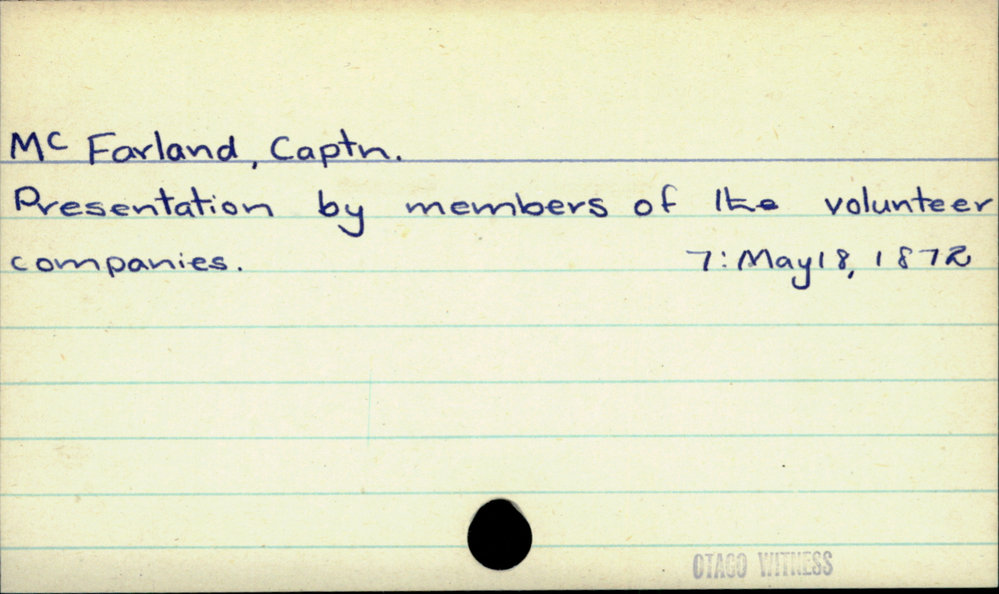 Mc Farland, Captn.
Presentation by members of the volunteer
companies. 7: May 18, 1872
OTAGO WITNESS